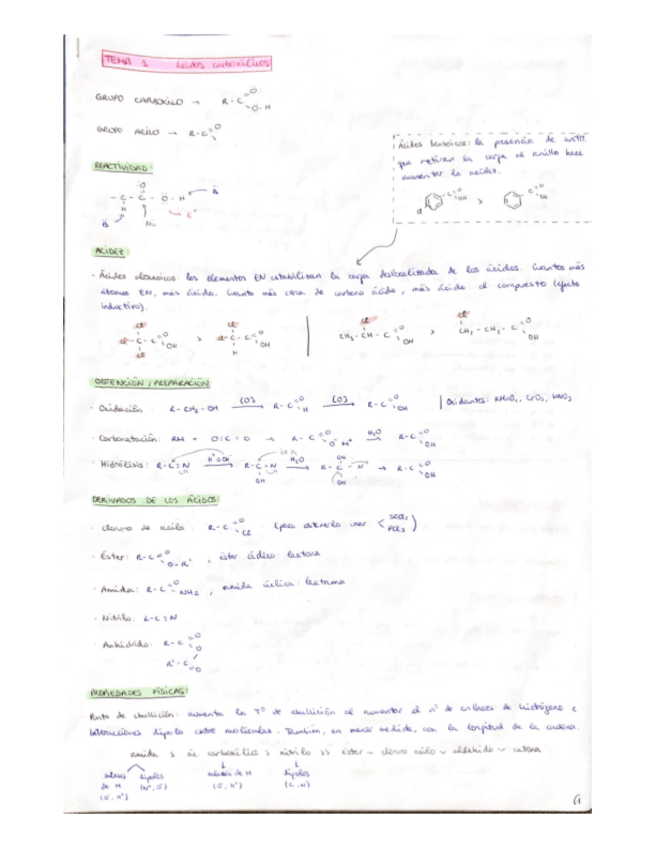 TEMA 1 Ácidos carboxílicos
GRUPO CARBOXILO → R-C =O O-H
GRUPO ACILO → R-C =O
Ácidos benzoicos: la presencia de sustit.
que retiran la carga al anillo hace
aumentar la acidez.
Cl C =O OH > C =O OH
REACTIVIDAD:
- C - C - O - H B
H
B Nu E⁺
ACIDEZ:
· Ácidos alcanoicos: los elementos EN estabilizan la carga deslocalizada de los ácidos. Cuantos más
átomos EN, más ácido. Cuanto más cerca de carbono ácido, más ácido el compuesto (efecto
inductivo).
Cl Cl Cl Cl
Cl - C - C =O OH > Cl - C - C =O OH | CH₃ - CH - C =O OH > CH₂ - CH₂ - C =O OH
Cl H
OBTENCIÓN / PREPARACIÓN:
· Oxidación: R-CH₂-OH [O] → R-C =O H [O] → R-C =O OH | Oxidantes: KMnO₄, CrO₃, HNO₃
· Carbonatación: RM + O=C=O → R-C =O O⁻M⁺ H₂O → R-C =O OH
· Hidrólisis: R-C≡N → R-C=N OH H₂O → R-C-N OH OH → R-C =O OH
DERIVADOS DE LOS ÁCIDOS:
· Cloruro de acilo: R-C =O Cl (para obtenerlo usar < SOCl₂ PCl₅)
· Éster: R-C =O O-R', éster cíclico: lactona
· Amida: R-C =O NH₂, amida cíclica: lactama
· Nitrilo: R-C≡N
· Anhídrido: R-C =O
O
R'-C =O
PROPIEDADES FÍSICAS:
Punto de ebullición: aumenta la Tº de ebullición al aumentar el nº de enlaces de hidrógeno e
interacciones dipolo entre moléculas. También, en menor medida, con la longitud de la cadena.
amida > ác. carboxílico > nitrilo >> éster ~ cloruro acilo ~ aldehído ~ cetona
enlaces dipolos enlaces de H dipolos
de H (N⁺, O⁻) (O⁻, H⁺) (C≡N)
(O⁻, H⁺)